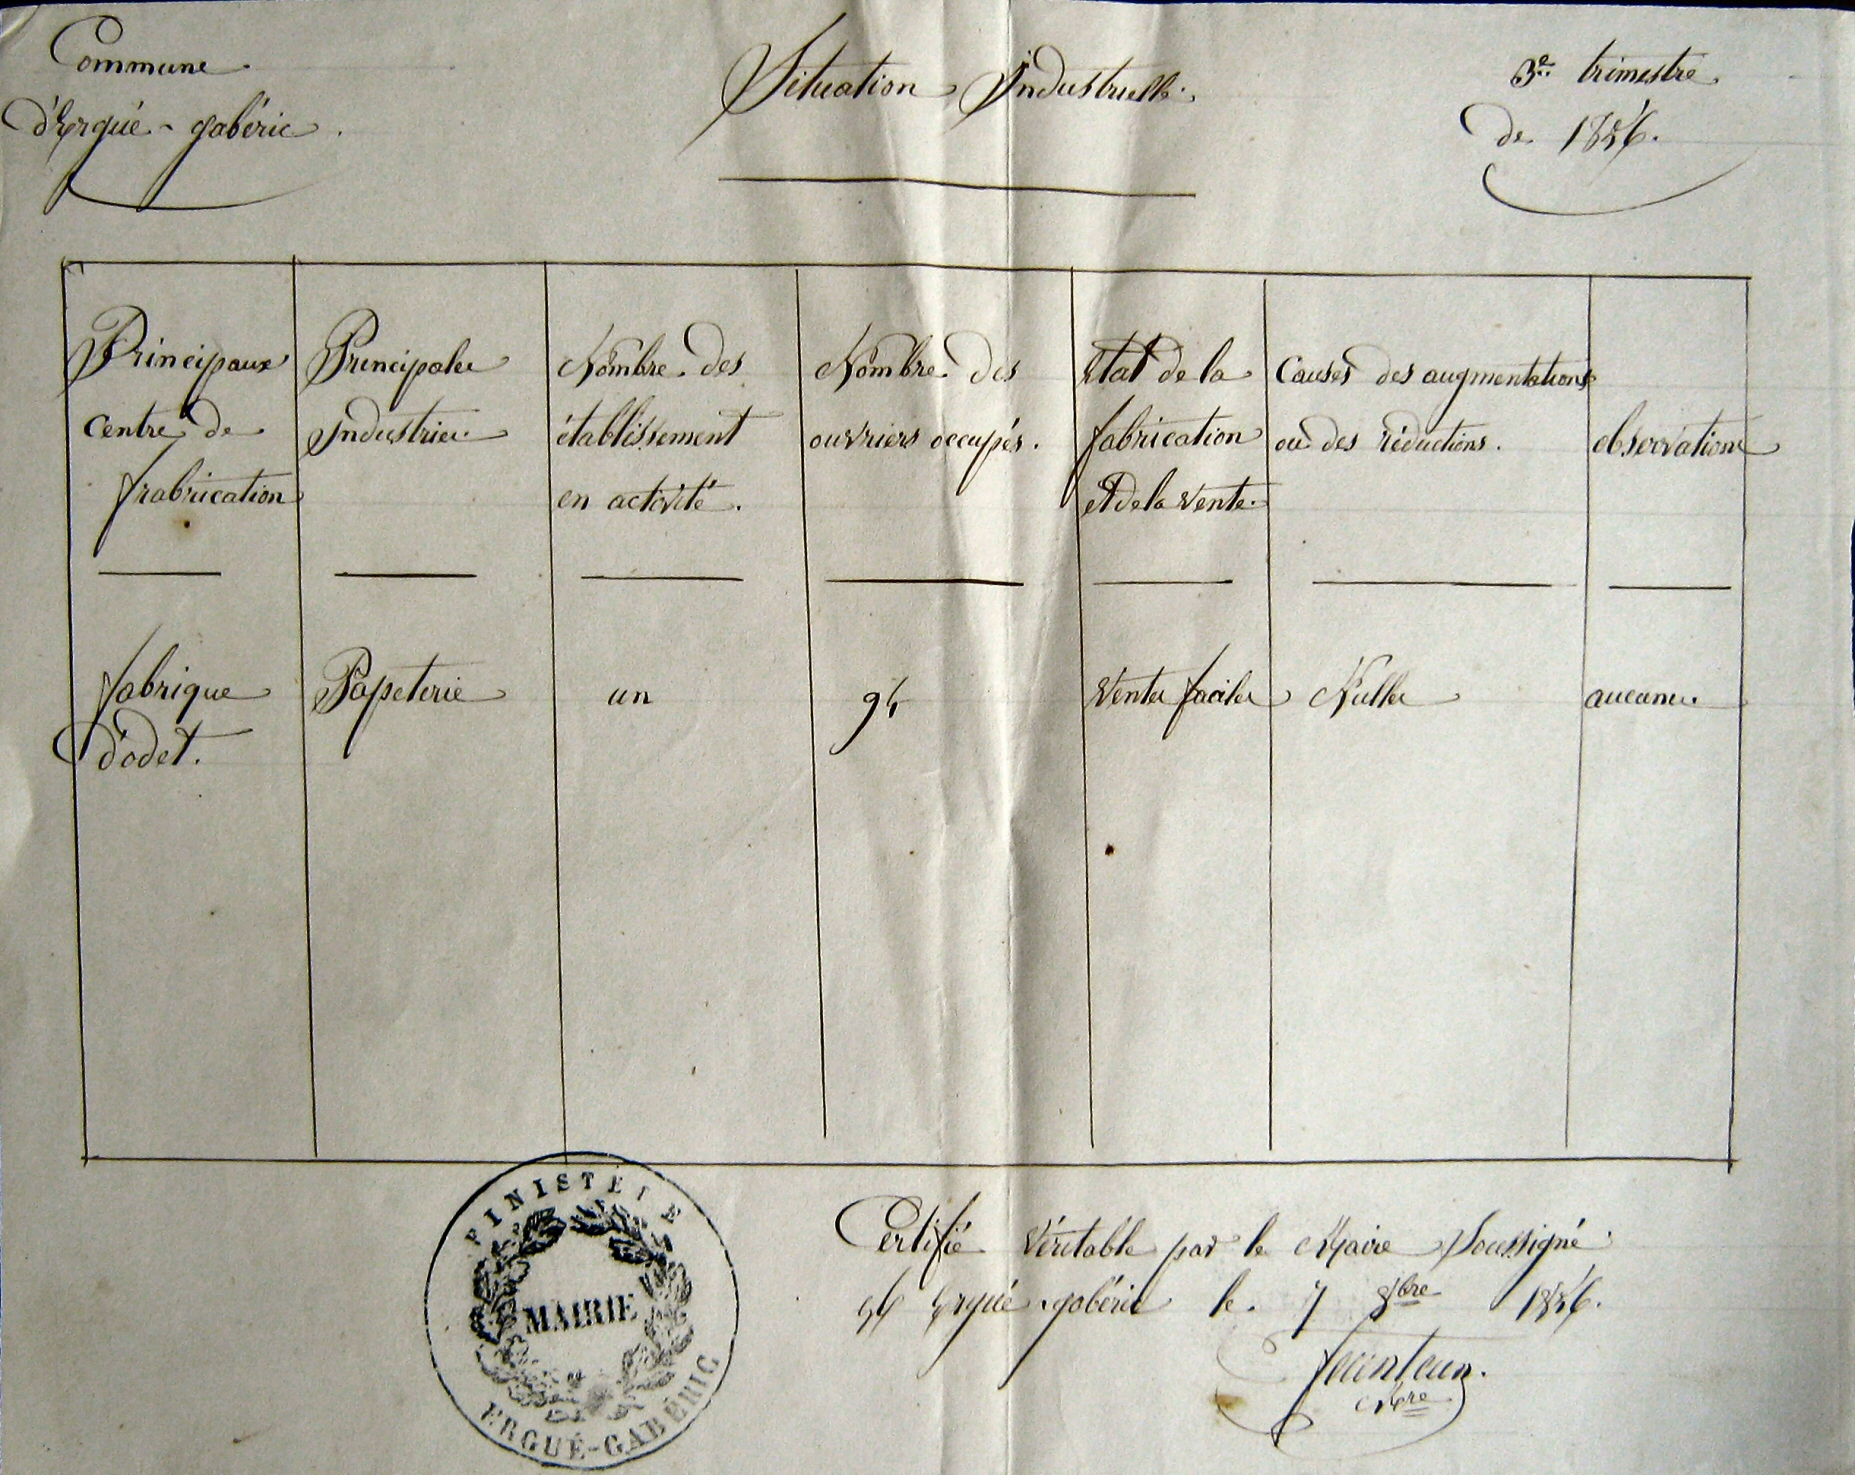 Commune
d'Ergué-gabéric.
Situation Industrielle.
3e trimestre
de 1856.
Principaux
centre de
frabrication
Principales
Industries
Nombre des
établissement
en activité.
Nombre des
ouvriers occupés.
Etat de la
fabrication
et de la vente.
Causes des augmentations
ou des réductions.
observations
fabrique
d'odet.
Papeterie
un
94
Ventes faciles
Nulles
aucune.
Certifié Véritable par le Maire Soussigné
Ergué-gabéric le 7 8bre 1856.
Mre
FINISTÈRE
MAIRIE
ERGUÉ-GABÉRIC